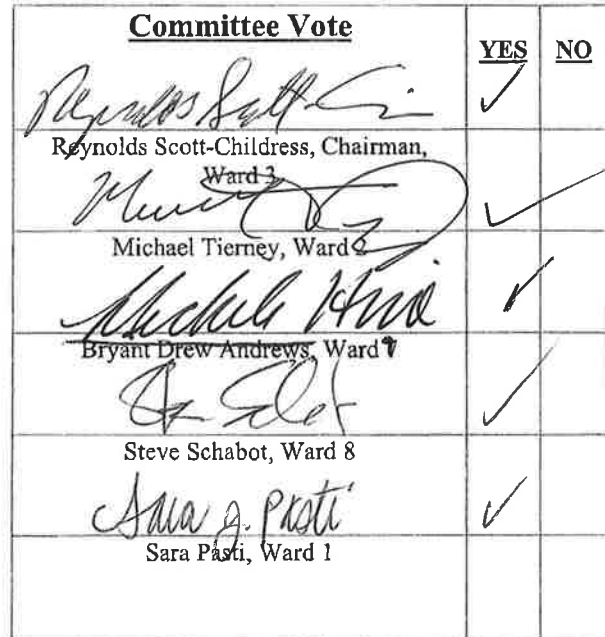 Committee Vote
YES NO
Reynolds Scott-Childress, Chairman,
Ward 3
✓
Michael Tierney, Ward 2
✓
Michele Hirsch
Bryant Drew Andrews, Ward 7
✓
Steve Schabot, Ward 8
✓
Sara J. Pasti
Sara Pasti, Ward 1
✓